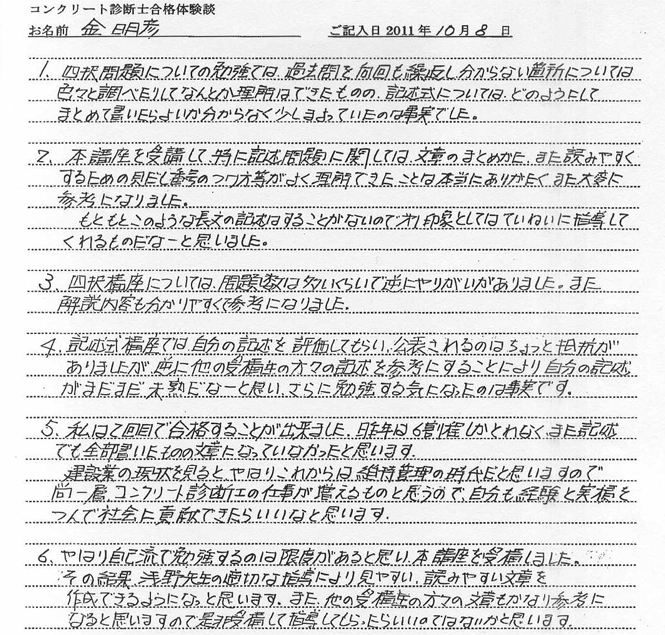 コンクリート診断士合格体験談
お名前 金 明彦 ご記入日 2011年10月8日
1、四択問題についての勉強では、過去問を何回も繰返し分からない箇所については
色々と調べたりしてなんとか理解はできたものの、記述式については、どのようにして
まとめて書いたらよいか分からなく少しまよっていたのは事実でした。
2、本講座を受講して、特に記述問題に関しては、文章のまとめかた、また読みやすく
するための見だし番号のつけ方等がよく理解できたことは本当にありがたくまた大変に
参考になりました。
もともとこのような長文の記述はすることがないので才1印象としてはていねいに指導して
くれるものだなーと思いました。
3、四択講座については、問題数は多いくらいで逆にやりがいがありました。また
解説内容も分かりやすくて参考になりました。
4、記述式講座では自分の記述を評価してもらい、公表されるのはちょっと抵抗が
ありましたが、逆に他の受講生の方々の記述を参考にすることにより自分の記述
がまだまだ未熟だなーと思い、さらに勉強する気になったのは事実です。
5、私は2回目で合格することが出来ました、昨年は6割程しかとれなく、また記述
でも全部書いたものの文章になっていなかったと思います。
建設業の現状を見ると、やはりこれからは維持管理の時代だと思いますので
尚一層コンクリート診断士の仕事が増えるものと思うので、自分も経験と実績を
つんで社会に貢献できたらいいなと思います。
6、やはり自己流で勉強するのは限度があると思い、本講座を受講しました。
その結果、浅野先生の適切な指導により見やすい、読みやすい文章を
作成できるようになったと思います。また、他の受講生の方々の文章もかなり参考に
なると思いますので是非受講して指導してもらったらいいのではないかと思います。